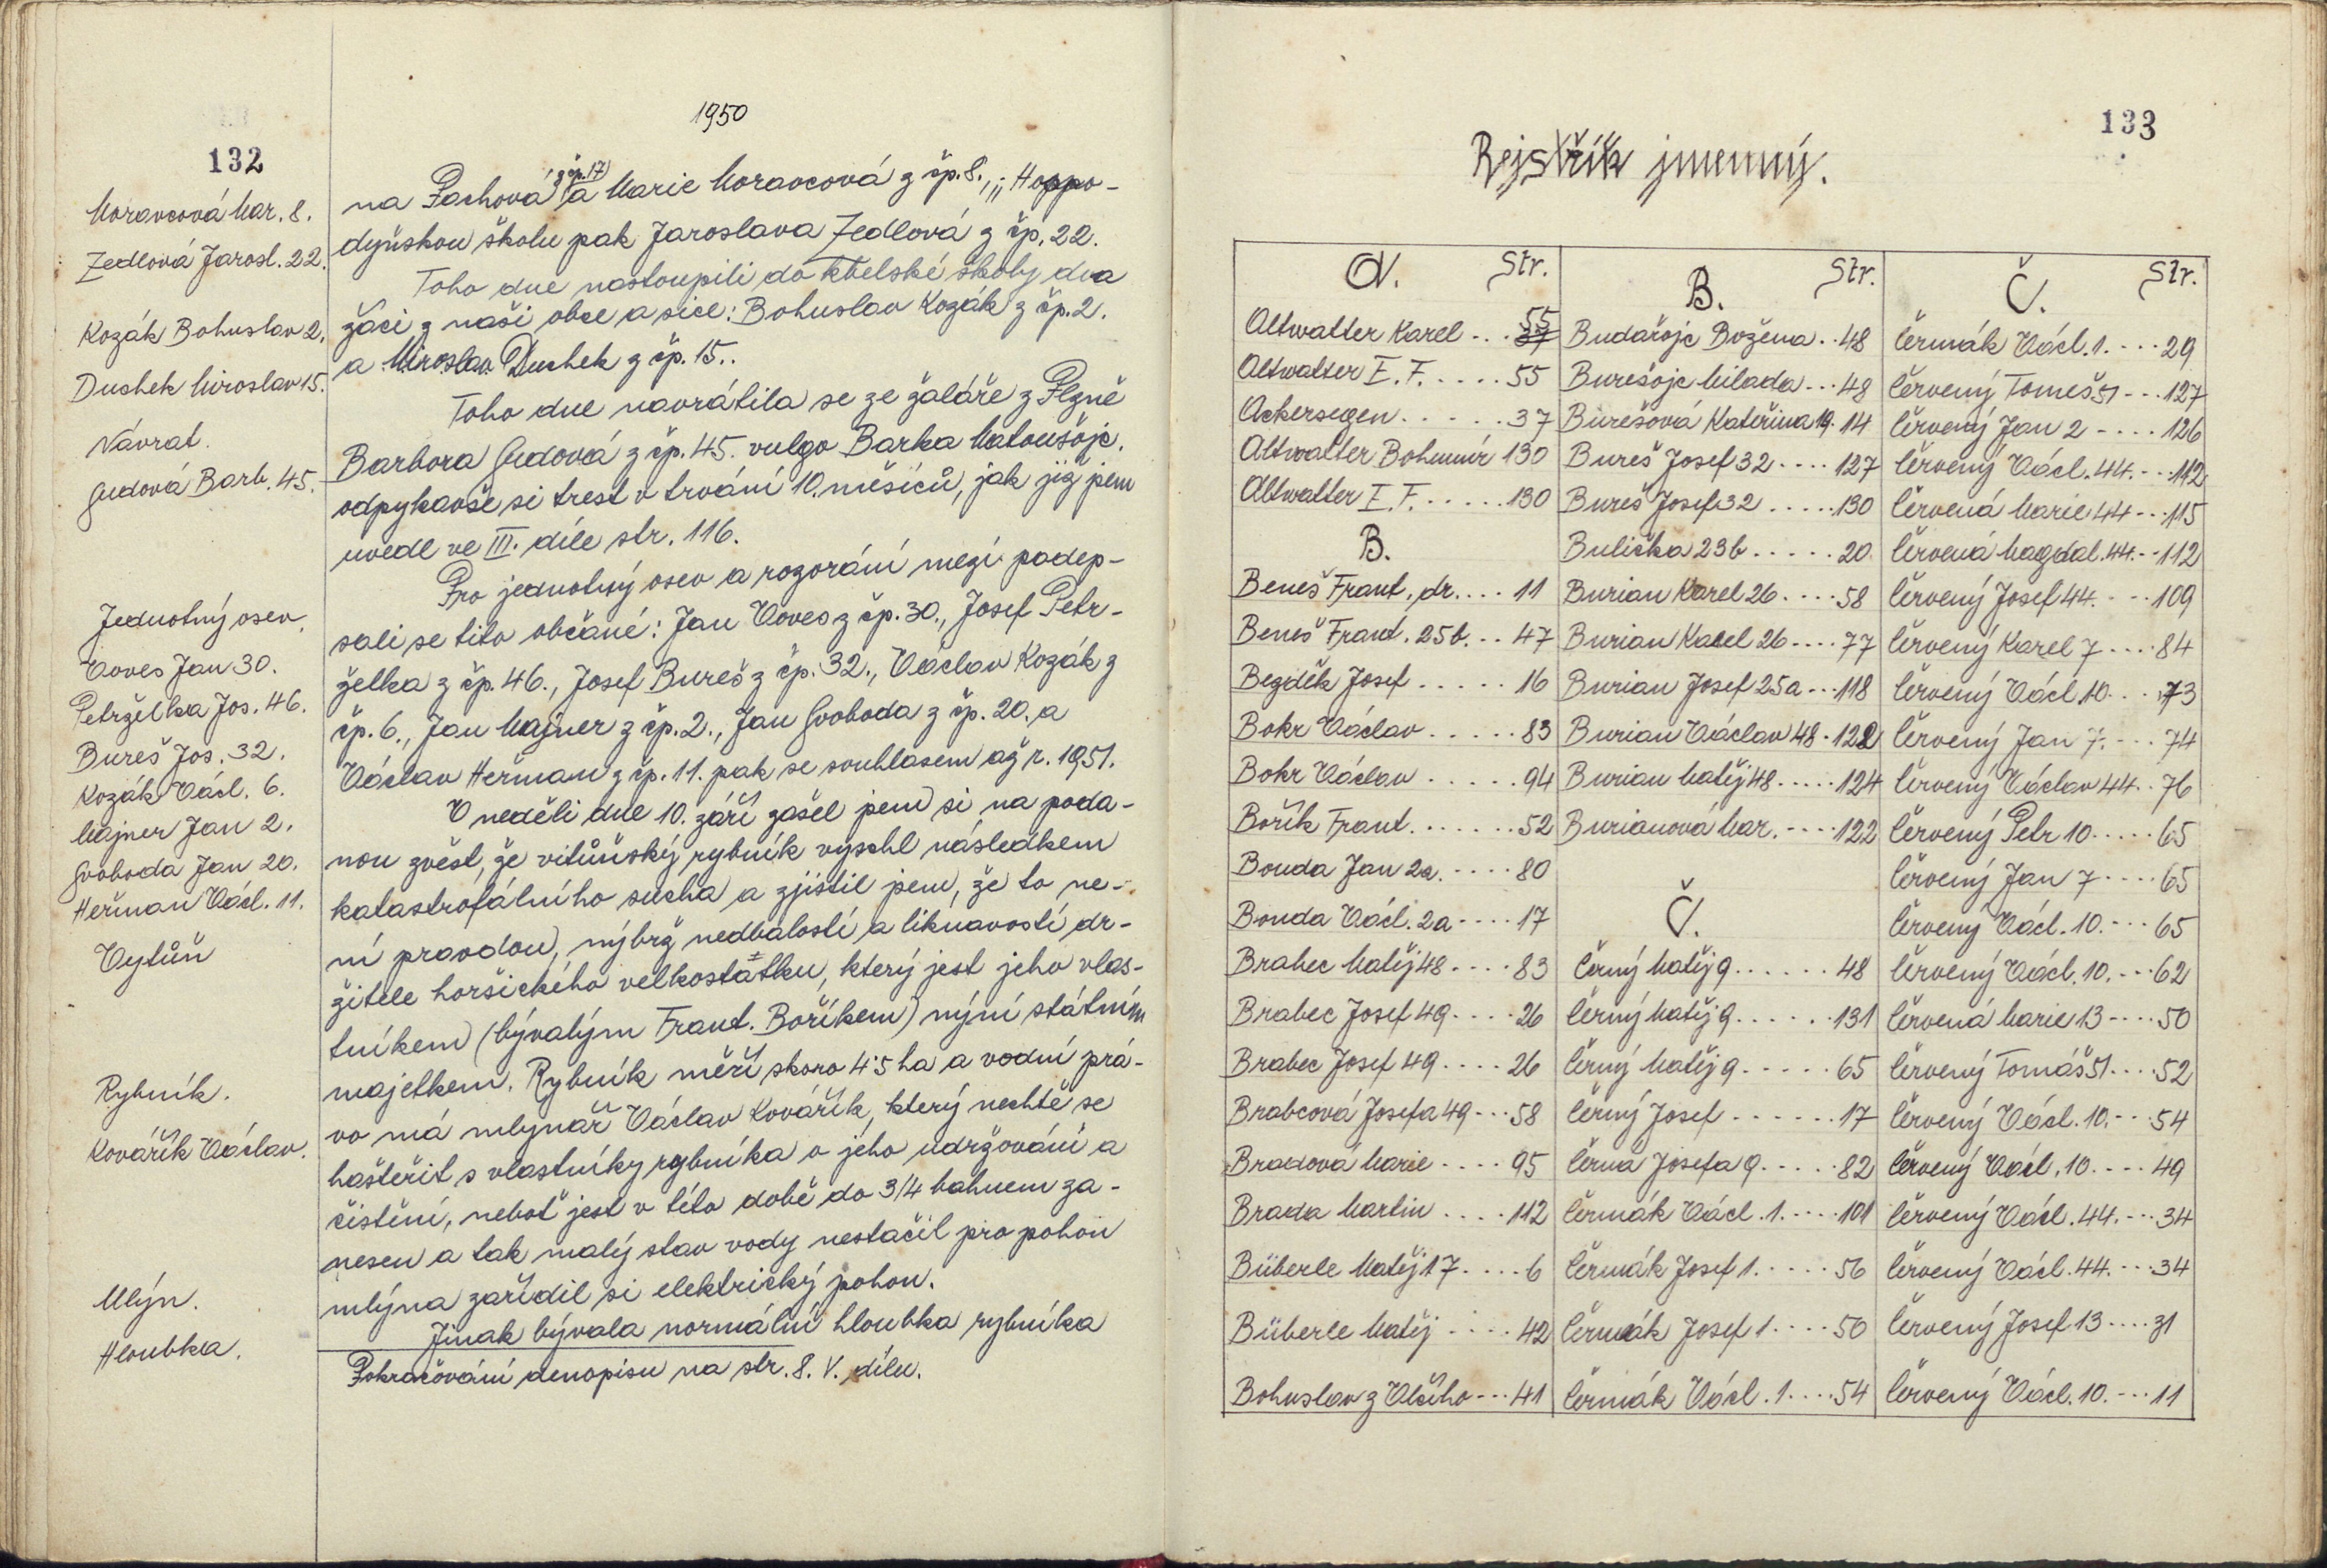 1950
132
Moravcová Mar. 8.
Zedlová Jarosl. 22.
Kozák Bohuslav 2.
Duchek Miroslav 15.
Návrat.
Gudová Barb. 45.
Jednotný osev.
Voves Jan 30.
Petrželka Jos. 46.
Bureš Jos. 32.
Kozák Václ. 6.
Majner Jan 2.
Svoboda Jan 20.
Heřman Václ. 11.
Vytůň
Rybník.
Kovářík Václav.
Mlýn.
Hloubka.
z čp. 17
na Pachová a Marie Moravcová z čp. 8., Hoppo-
dyňskou školu pak Jaroslava Zedlová z čp. 22.
Toho dne nastoupili do kbelské školy dva
žáci z naši obce a sice: Bohuslav Kozák z čp. 2.
a Miroslav Duchek z čp. 15..
Toho dne navrátila se ze žaláře z Plzně
Barbora Gudová z čp. 45. vulgo Barka Matoušojc.
odpykavše si trest v trvání 10. měsíců, jak již jsem
uvedl ve III. díle str. 116.
Pro jednotný osev a rozorání mezí podep-
sali se tito občané: Jan Voves z čp. 30., Josef Petr-
želka z čp. 46., Josef Bureš z čp. 32., Václav Kozák z
čp. 6., Jan Majner z čp. 2., Jan Svoboda z čp. 20. a
Václav Heřman z čp. 11. pak se souhlasem až r. 1951.
V neděli dne 10. září zašel jsem si na poda-
nou zvěst, že vitůňský rybník vyschl následkem
katastrofálního sucha a zjistil jsem, že to ne-
ní pravdou, nýbrž nedbalostí a liknavostí dr-
žitele horšického velkostatku, který jest jeho vlas-
tníkem (bývalým Frant. Boříkem) nýní státním
majetkem. Rybník měří skoro 4·5 ha a vodní prá-
vo má mlynář Václav Kovářík, který nechtě se
hašteřit s vlastníky rybníka o jeho udržování a
čistění, neboť jest v této době do 3/4 bahnem za-
nesen a tak malý stav vody nestačil pro pohon
mlýna zařídil si elektrický pohon.
Jinak bývala normální hloubka rybníka
Pokračování denopisu na str. 8. V. dílu.
133
Rejstřík jmenný.
A. Str.
Altwatter Karel ... 37 55
Altwatter I. F. ..... 55
Ackersegen ...... 37
Altwatter Bohumír 130
Altwatter I. F. ..... 130
B.
Beneš Frant. dr. ... 11
Beneš Frant. 25b. .. 47
Bezděk Josef ..... 16
Bokr Václav ..... 83
Bokr Václav ..... 94
Bořík Frant. ...... 52
Bouda Jan 2a. .... 80
Bouda Václ. 2a .... 17
Brabec Matěj 48 .... 83
Brabec Josef 49 .... 26
Brabec Josef 49 .... 26
Brabcová Josefa 49 ... 58
Bradová Marie .... 95
Brada Martin .... 112
Büberle Matěj 17 .... 6
Büberle Matěj .... 42
Bohuslav z Vlčího ... 41
B. Str.
Budařojc Božena .. 48
Burešojc Milada ... 48
Burešová Kateřina 19. 14
Bureš Josef 32 .... 127
Bureš Josef 32 ..... 130
Bulička 23b ..... 20
Burian Karel 26 .... 58
Burian Karel 26 .... 77
Burian Josef 25a ... 118
Burian Václav 48 . 122
Burian Matěj 48 ..... 124
Burianová Mar. .... 122
Č.
Černý Matěj 9 ...... 48
Černý Matěj 9 ...... 131
Černý Matěj 9 ..... 65
Černý Josef ...... 17
Černá Josefa 9 ..... 82
Čermák Václ. 1. .... 101
Čermák Josef 1. .... 56
Čermák Josef 1 .... 50
Čermák Václ. 1 .... 54
Č. Str.
Čermák Václ. 1. ... 29
Červený Tomeš 51 ... 127
Červený Jan 2 .... 126
Červený Václ. 44. ... 112
Červená Marie 44 ... 115
Červená Magdal. 44. .. 112
Červený Josef 44. ... 109
Červený Karel 7 .... 84
Červený Václ. 10 ... 73
Červený Jan 7. ... 74
Červený Václav 44. . 76
Červený Petr 10 ..... 65
Červený Jan 7 .... 65
Červený Václ. 10. ... 65
Červený Václ. 10. ... 62
Červená Marie 13 .... 50
Červený Tomáš 51 .... 52
Červený Václ. 10. ... 54
Červený Václ. 10. ... 49
Červený Václ. 44. ... 34
Červený Václ. 44. ... 34
Červený Josef 13 .... 31
Červený Václ. 10. ... 11